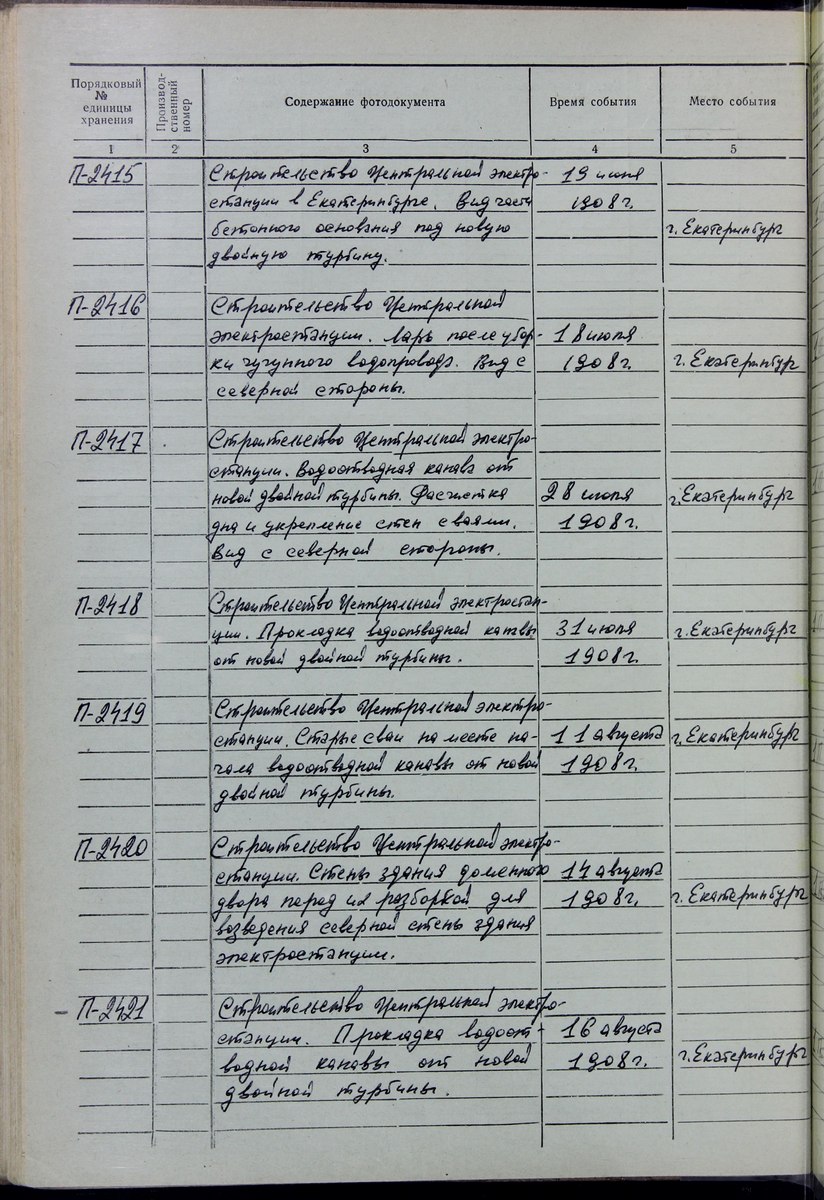 Порядковый № единицы хранения
Производственный номер
Содержание фотодокумента
Время события
Место события
1 2 3 4 5
П-2415 Строительство Центральной электро- 19 июня
станции в Екатеринбурге. Вид части 1908 г.
бетонного основания под новую г. Екатеринбург
двойную турбину.
П-2416 Строительство Центральной
электростанции. Ларь после убор- 18 июля
ки чугунного водопровода. Вид с 1908 г. г. Екатеринбург
северной стороны.
П-2417 Строительство Центральной электро-
станции. Водоотводная канава от
новой двойной турбины. Расчистка 28 июля г. Екатеринбург
дна и укрепление стен сваями. 1908 г.
Вид с северной стороны.
П-2418 Строительство Центральной электростан-
ции. Прокладка водоотводной канавы 31 июля г. Екатеринбург
от новой двойной турбины. 1908 г.
П-2419 Строительство Центральной электро-
станции. Старые сваи на месте на- 11 августа г. Екатеринбург
чала водоотводной канавы от новой 1908 г.
двойной турбины.
П-2420 Строительство Центральной электро-
станции. Стены здания доменного 14 августа
двора перед их разборкой для 1908 г. г. Екатеринбург
возведения северной стены здания
электростанции.
П-2421 Строительство Центральной электро-
станции. Прокладка водоот- 16 августа
водной канавы от новой 1908 г. г. Екатеринбург
двойной турбины.